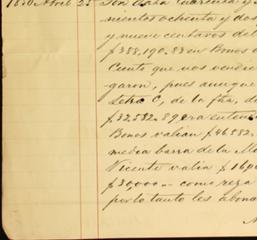 Abril 25
nientos ochenta y dos
y nueve centavos del
$388,190.88 en Bonos
Ciento que nos vendie
garon, pues aunque
Letra C, de la fha, de
$32,532.89
Bonos valian $46,882.
media barra de la
Vicente valia $16,0
$30,000 — como reza
por lo tanto les abona